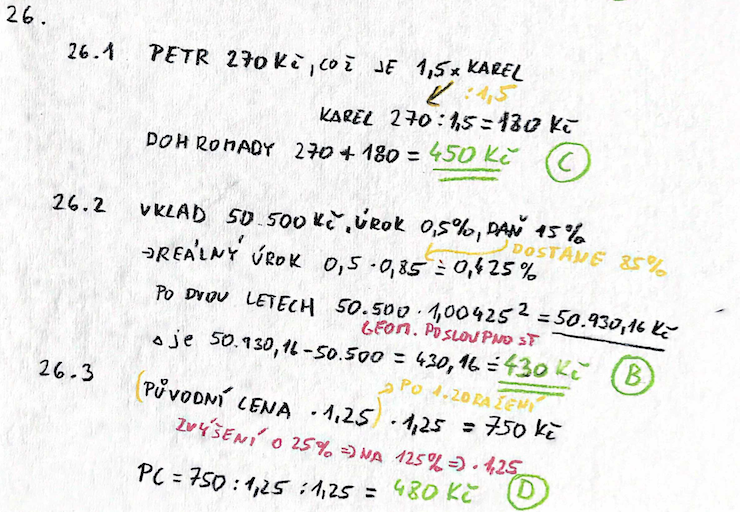 26.
26.1 PETR 270 Kč, COŽ JE 1,5x KAREL
:1,5
KAREL 270 : 1,5 = 180 Kč
DOHROMADY 270 + 180 = 450 Kč C
26.2 VKLAD 50.500 Kč, ÚROK 0,5%, DAŇ 15%
DOSTANE 85%
⇒REÁLNÝ ÚROK 0,5 · 0,85 ≐ 0,425%
PO DVOU LETECH 50.500 · 1,00425² = 50.930,16 Kč
GEOM. POSLOUPNOST
△ je 50.930,16 - 50.500 = 430,16 ≐ 430 Kč B
26.3
PO 1. ZDRAŽENÍ
(PŮVODNÍ CENA · 1,25) · 1,25 = 750 Kč
ZVÝŠENÍ O 25% ⇒ NA 125% ⇒ · 1,25
PC = 750 : 1,25 : 1,25 = 480 Kč D